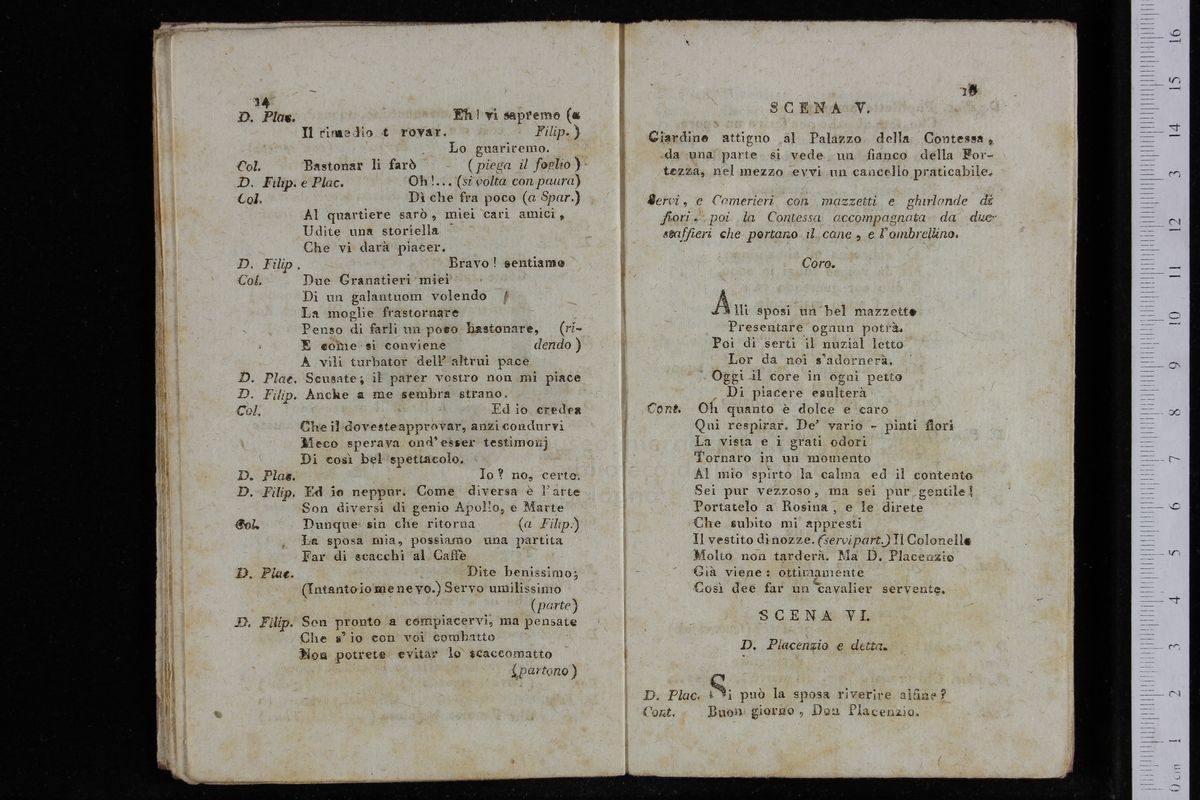 14
D. Plac. Eh! vi sapremo (a
Il rimedio t rovar. Filip.)
Lo guariremo.
Col. Bastonar li farò (piega il foglio)
D. Filip. e Plac. Oh!... (si volta con paura)
Col. Dì che fra poco (a Spar.)
Al quartiere sarò, miei cari amici,
Udite una storiella
Che vi darà piacer.
D. Filip. Bravo! sentiamo
Col. Due Granatieri miei
Di un galantuom volendo
La moglie frastornare
Penso di farli un poco bastonare, (ri-
E come si conviene dendo)
A vili turbator dell' altrui pace
D. Plac. Scusate; il parer vostro non mi piace
D. Filip. Anche a me sembra strano.
Col. Ed io credea
Che il doveste approvar, anzi condurvi
Meco sperava ond' esser testimonj
Di così bel spettacolo.
D. Plac. Io? no, certo.
D. Filip. Ed io neppur. Come diversa è l'arte
Son diversi di genio Apollo, e Marte
Col. Dunque sin che ritorna (a Filip.)
La sposa mia, possiamo una partita
Far di scacchi al Caffè
D. Plac. Dite benissimo;
(Intanto io me ne vo.) Servo umilissimo
(parte)
D. Filip. Son pronto a compiacervi, ma pensate
Che s' io con voi combatto
Non potrete evitar lo scaccomatto
(partono)
SCENA V.
Giardino attiguo al Palazzo della Contessa,
da una parte si vede un fianco della For-
tezza, nel mezzo evvi un cancello praticabile.
Servi, e Camerieri con mazzetti e ghirlande di
fiori. poi la Contessa accompagnata da due
staffieri che portano il cane, e l'ombrellino.
Coro.
Alli sposi un bel mazzetto
Presentare ognun potrà.
Poi di serti il nuzial letto
Lor da noi s'adornerà.
Oggi il core in ogni petto
Di piacere esulterà
Cont. Oh quanto è dolce e caro
Qui respirar. De' vario - pinti fiori
La vista e i grati odori
Tornaro in un momento
Al mio spirto la calma ed il contento
Sei pur vezzoso, ma sei pur gentile!
Portatelo a Rosina, e le direte
Che subito mi appresti
Il vestito di nozze. (servi part.) Il Colonello
Molto non tarderà. Ma D. Placenzio
Già viene: ottimamente
Così dee far un cavalier servente.
SCENA VI.
D. Placenzio e detta.
D. Plac. Si può la sposa riverire alfine?
Cont. Buon giorno, Don Placenzio.
0 cm 1 2 3 4 5 6 7 8 9 10 11 12 13 14 15 16